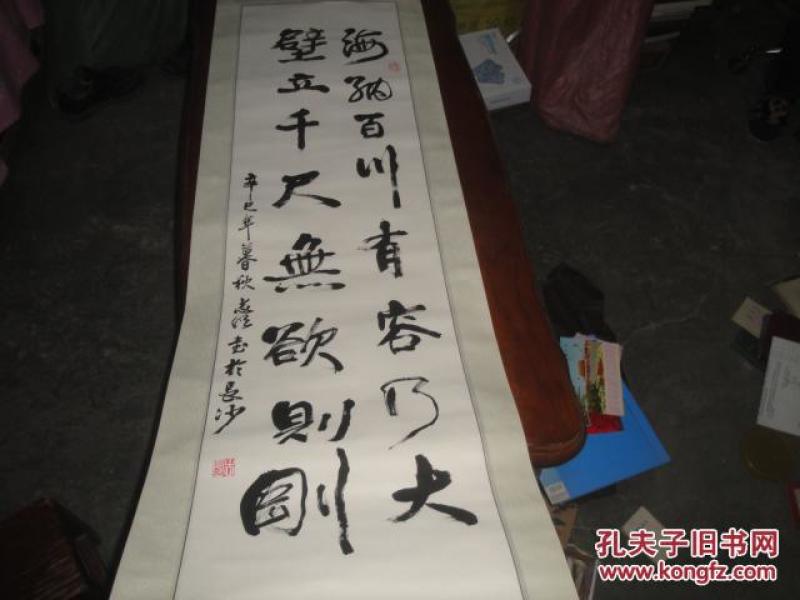 海納百川有容乃大
壁立千尺無欲則剛
辛巳年暮秋 書於長沙
孔夫子旧书网
www.kongfz.com